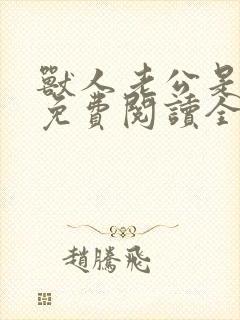 獸人老公是
免費閱讀全
趙騰飛